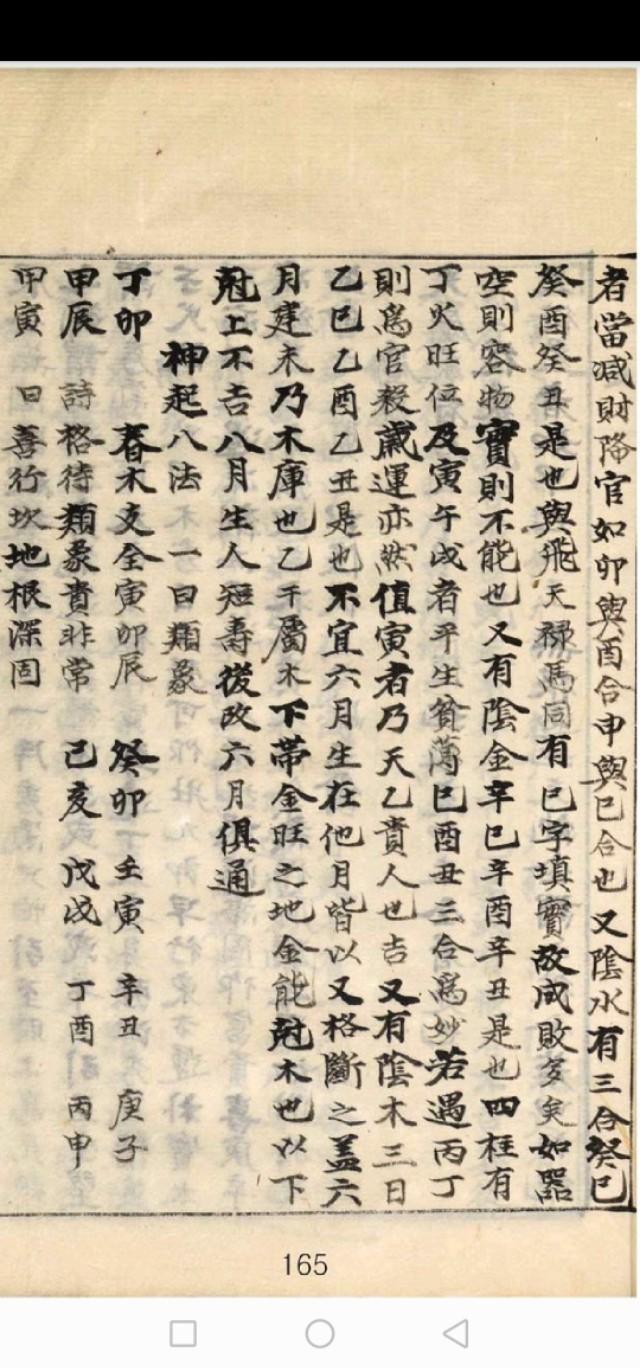 者當减財降官如卯與酉合申與巳合也又陰水有三合癸巳
癸酉癸丑是也與飛天禄馬同有巳字填實故成敗多矣如器
空則容物實則不能也又有陰金辛巳辛酉辛丑是也四柱有
丁火旺位及寅午戌者平生貧薄巳酉丑三合為妙若遇丙丁
則為官殺歲運亦然值寅者乃天乙貴人也吉又有陰木三日
乙巳乙酉乙丑是也不宜六月生在他月皆以又格斷之盖六
月建未乃木庫也乙干屬木下帶金旺之地金能尅木也以下
尅上不吉八月生人短壽後改六月俱通
神起八法 一曰類象
丁卯 春木支全寅卯辰 癸卯 壬寅 辛丑 庚子
甲辰 詩 格待類象貴非常 己亥 戊戌 丁酉 丙申
甲寅 曰 善行坎地根深固
165